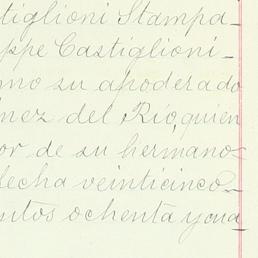 tiglioni Stampa-
ppe Castiglioni-
mo su apoderado
inez del Río, quien
or de su hermano-
fecha veinticinco-
ntos ochenta y una